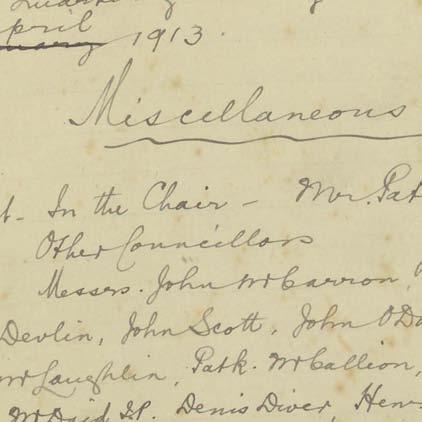 April
1913.
Miscellaneous
In the Chair - Mr. Pat
Other Councillors
Messrs. John McCarron,
Devlin, John Scott, John O'Do
McLaughlin, Patk. McCallion,
McDaid J.P. Denis Diver, Hen